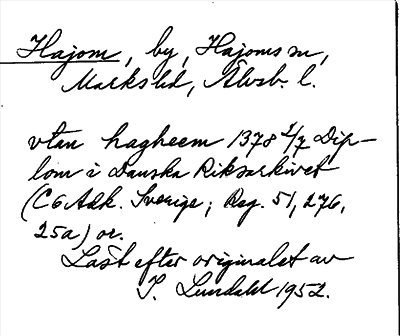 Hajom, by, Hajoms sn,
Marks hd, Älvsb. l.
vtan hagheem 1378 1/7 Dip-
lom i Danska Riksarkivet
(C6 Adk. Sverige; Reg. 51, 276,
25a) or.
Läst efter originalet av
I. Lundahl 1952.